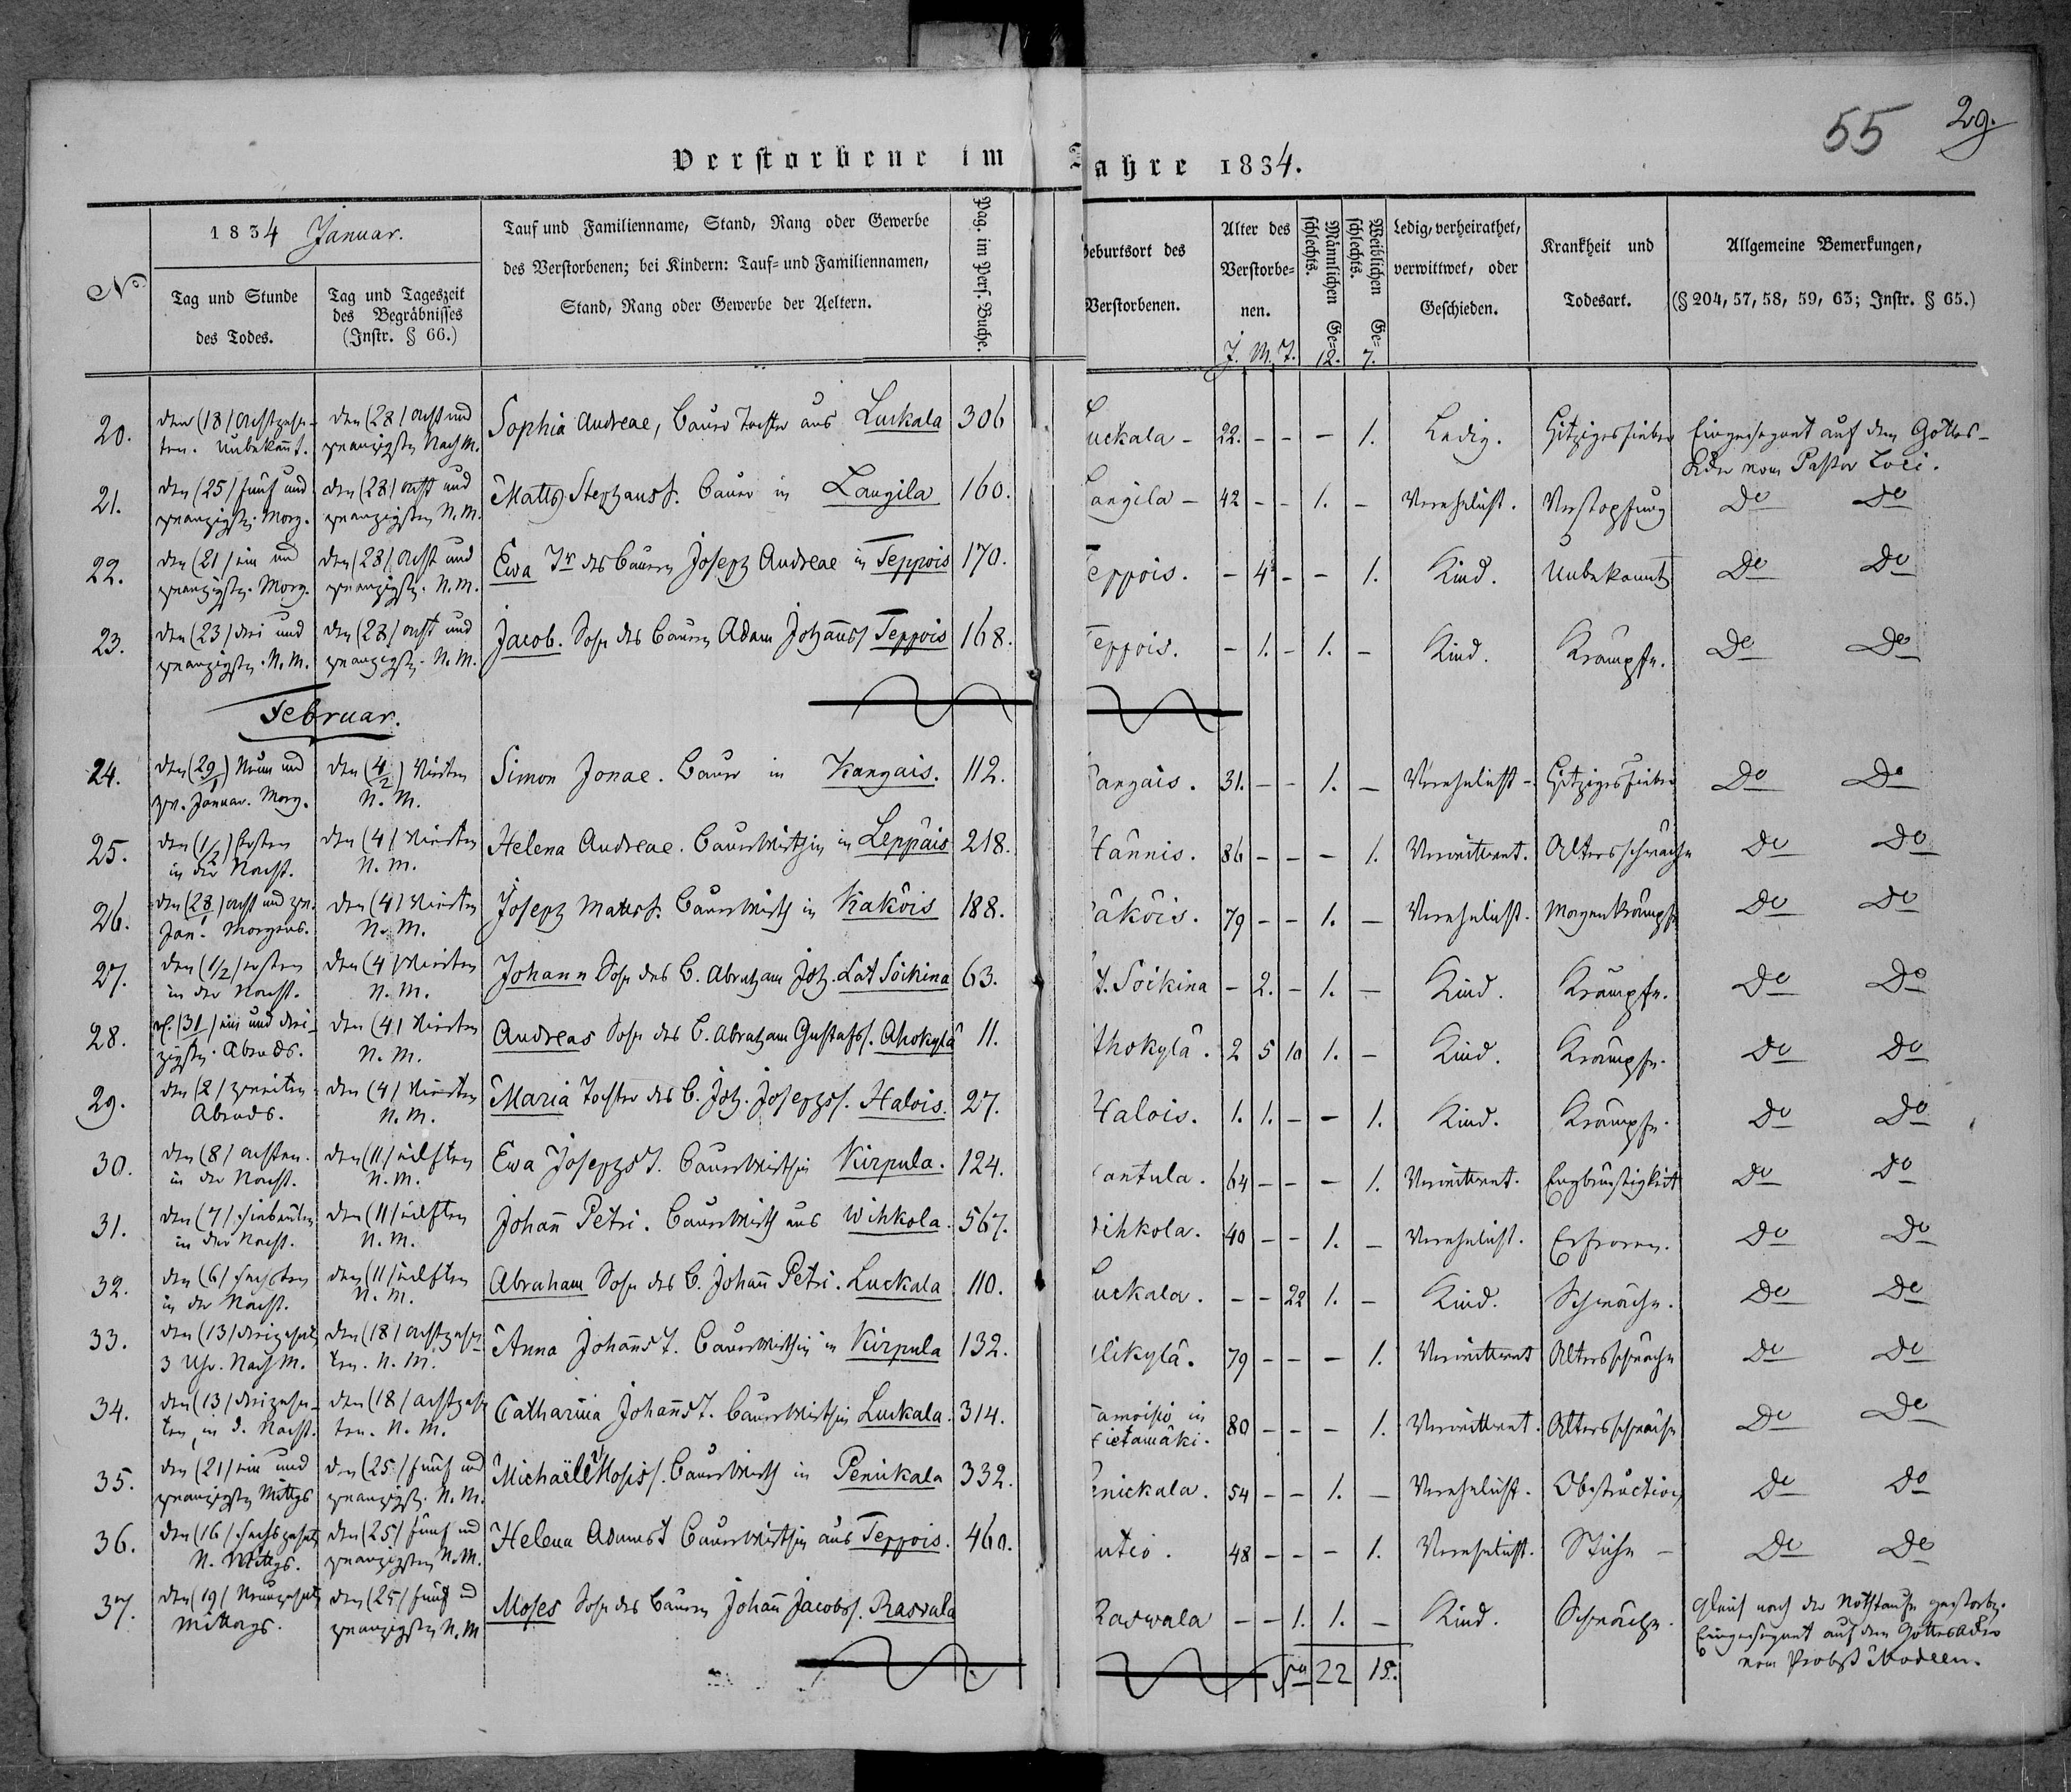 55 29.
Verstorbene im Jahre 1834.
No
1834 Januar.
Tag und Stunde
des Todes.
Tag und Tageszeit
des Begräbnisses
(Instr. § 66.)
Tauf und Familienname, Stand, Rang oder Gewerbe
des Verstorbenen; bei Kindern: Tauf= und Familiennamen,
Stand, Rang oder Gewerbe der Aeltern.
Pag. im Pers. Buche.
Geburtsort des
Verstorbenen.
Alter des
Verstorbe=
nen.
J. M. T.
Männlichen Ge=
schlechts.
12.
Weiblichen Ge=
schlechts.
7.
Ledig, verheirathet,
verwittwet, oder
Geschieden.
Krankheit und
Todesart.
Allgemeine Bemerkungen,
(§ 204, 57, 58, 59, 63; Instr. § 65.)
20. den (18) achtzehn- den (28) acht und Sophia Andreae, Bauer Tochter aus Luckala 306 Luckala - 22. - - - 1. Ledig. Hitziges fieber Eingesegnet auf dem Gottes-
ten. Unbekannt. zwanzigsten Nach M. Acker vom Pastor Loci.
21. den (25) fünf und den (28) acht und Matts Stephanss. Bauer in Langila 160. Langila - 42 - - 1. - Verehelicht. Verstopfung Do Do
zwanzigst. Morg. zwanzigsten N. M.
22. den (21) ein und den (28) acht und Ewa Tr des Bauern Joseph Andreae in Teppois 170. Teppois. - 4 - - 1. Kind. Unbekannt Do Do
zwanzigst. Morg. zwanzigst. N. M.
23. den (23) drei und den (28) acht und Jacob. Sohn des Bauern Adam Johanns Teppois 168. Teppois. - 1. - 1. - Kind. Krämpfe. Do Do
zwanzigst. N. M. zwanzigst. N. M.
Februar.
24. den (29/1) Neun und den (4/2) Vierten Simon Jonae. Bauer in Kangais. 112. Kangais. 31. - - 1. - Verehelicht - Hitziges fieber Do Do
zw. Januar. Morg. N. M.
25. den (1/2) Ersten den (4) Vierten Helena Andreae. Bauer Wirthin in Leppäis 218. Hännis. 86 - - - 1. Verwittwet. Altersschwäche Do Do
in der Nacht. N. M.
26. den (28) acht und zw. den (4) Vierten Joseph Matts s. Bauer Wirth in Käköis 188. Käköis. 79 - - 1. - Verehelicht. Do Do
Jan. Morgens. N. M.
27. den (1/2) ersten den (4) Vierten Johann Sohn des B. Abraham Joh. Lat Soikina 63. Lat. Soikina - 2. - 1. - Kind. Krämpfe. Do Do
in der Nacht. N. M.
28. (31) ein und drei- den (4) Vierten Andreas Sohn des B. Abraham Gustafs. Ahokylä 11. Ahokylä. 2 5 10 1. - Kind. Krämpfe. Do Do
zigst. Abends. N. M.
29. den (2) zweiten den (4) Vierten Maria Tochter des B. Joh. Josephs s. Halois. 27. Halois. 1. 1. - - 1. Kind. Krämpfe. Do Do
Abends. N. M.
30. den (8) achten. den (11) eilften Ewa Josephs T. Bauer Wirthin Kirpula. 124. Kantula. 64 - - - 1. Verwittwet. Engbrüstigkeit Do Do
in der Nacht. N. M.
31. den (7) siebenten den (11) eilften Johann Petri. Bauer Wirth aus Wihkola. 567. Wihkola. 40 - - 1. - Verehelicht. Erfroren. Do Do
in der Nacht. N. M.
32. den (6) sechsten den (11) eilften Abraham Sohn des B. Johann Petri. Luckala 110. Luckala. - - 22 1. - Kind. Schwäche. Do Do
in der Nacht. N. M.
33. den (13) dreizehnt. den (18) achtzehn- Anna Johanns T. Bauer Wirthin in Kirpula 132. Ylikylä. 79 - - - 1. Verwittwet Altersschwäche Do Do
3 Uhr. Nach M. ten. N. M.
34. den (13) dreizehn- den (18) achtzehn Catharina Johanns T. Bauer Wirthin Luckala. 314. in 80 - - - 1. Verwittwet. Altersschwäche Do Do
ten, in d. Nacht. ten. N. M. Hietamäki.
35. den (21) ein und den (25) fünf und Michaël Mosis s. Bauer Wirth in Penikala 332. Penickala. 54 - - 1. - Verehelicht. Obstruction Do Do
zwanzigsten Mittgs zwanzigst. N. M.
36. den (16) sechszehnt. den (25) fünf und Helena Adams T Bauer Wirthin aus Teppois. 460. 48 - - - 1. Verehelicht. Stiche - Do Do
N. Mittgs. zwanzigsten N. M.
37. den (19) Neunzehnt. den (25) fünf und Moses Sohn des Bauern Johann Jacobs s. Raswala Raswala - - 1. 1. - Kind. Schwäche. Gleich nach der Nothtaufe gestorben.
Mittags. zwanzigsten N. M Eingesegnet auf dem Gottesacker
vom Probst Modeen.
Sa 22 15.